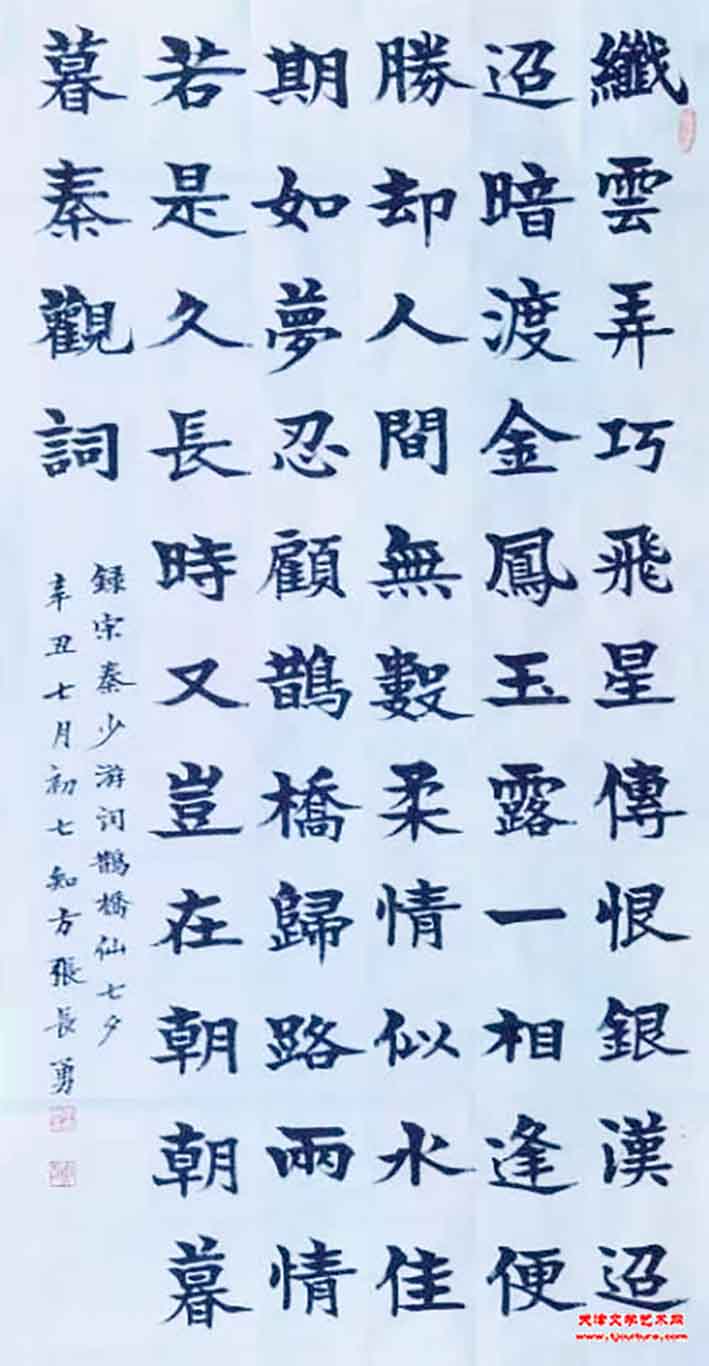 纖雲弄巧飛星傳恨銀漢迢
迢暗渡金鳳玉露一相逢便
勝却人間無數柔情似水佳
期如夢忍顧鵲橋歸路兩情
若是久長時又豈在朝朝暮
暮秦觀詞
録宋秦少游词鵲橋仙七夕
辛丑七月初七知方張長勇
天津文学艺术网